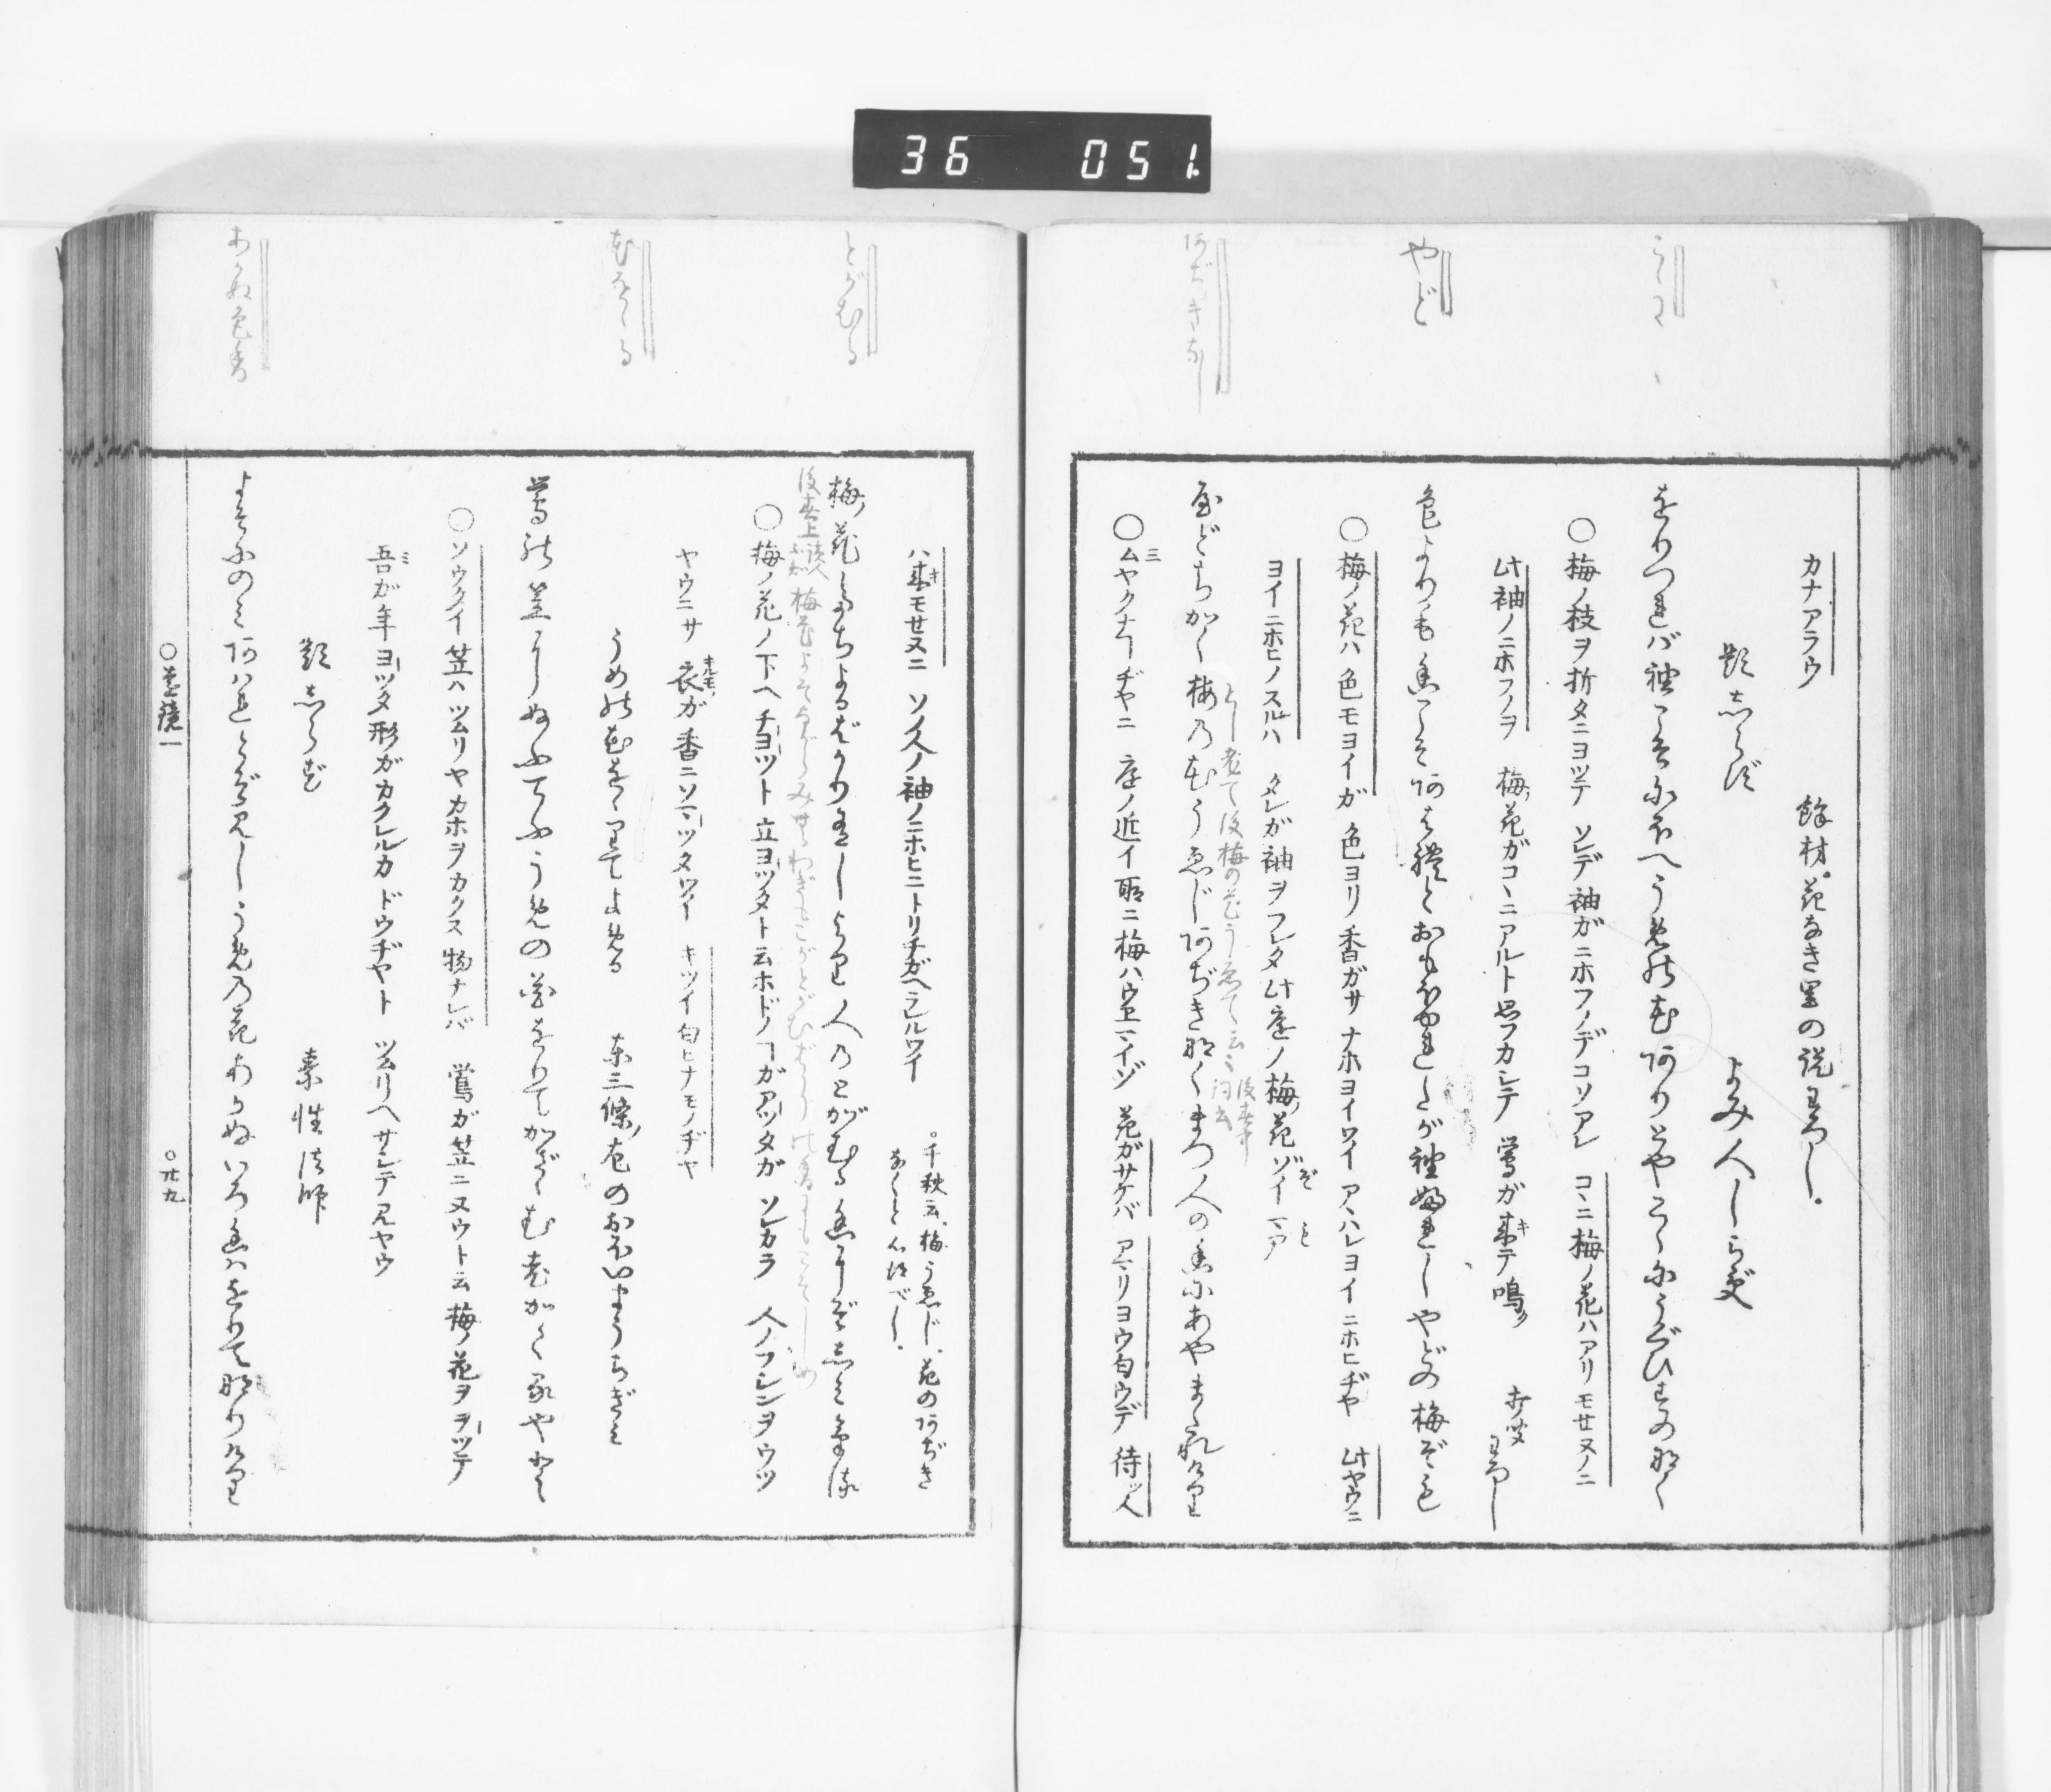 36 051
カナアラウ 餘材花なき里の説わろし.
題しらず よみ人しらず
をりつればそでこそにほへうめの花ありとやこゝにうぐひすのなく
○梅ノ枝ヲ折タニヨツテ ソレデ袖ガニホフノデコソアレ コヽニ梅ノ花ハアリモセヌノニ
此袖ノニホフノヲ 梅ノ花ガコヽニアルト思フカシテ 鶯ガ來テ鳴ク わろし
やど
色よりも香こそあはれとおもほゆれたが袖ふれしやどの梅ぞも
○梅ノ花ハ 色モヨイガ 色ヨリ香ガサ ナホヨイワイ アヽハレヨイニホヒヂヤ 此ヤウニ
ヨイニホヒノスルハ タレガ袖ヲフレタ此庭ノ梅ノ花ゾイマア
あぢきなし
やどちかく梅の花うゑじあぢきなくまつ人の香にあやまたれけり
○ムヤクナコトヂヤニ 庭ノ近イ所ニ梅ハウヱマイゾ 花ガサケバ アマリヨウ匂ウデ 待ツ人
ハ來モセヌニ ソノ人ノ袖ノニホヒニトリチガヘラレルワイ ○千秋云、梅うゑじ、花のあぢき
なくと心得べし.
とがむる
梅ノ花たちよるばかりありしより人のとがむる香にぞしみぬる
○梅ノ花ノ下ヘチヨツト立ヨツタト云ホドノコトガアツタガ ソレカラ 人ノフシンヲウツ
ヤウニサ 衣ガ香ニソマツタワイ キツイ匂ヒナモノヂヤ
うめの花ををりてよめる 東三條ノ左のおほいまうちぎみ
鶯の笠にぬふてふうめの花をりてかざさむ老かくるやと
○ソウタイ笠ハ ツムリヤカホヲカクス物ナレバ 鶯ガ笠ニヌウト云梅ノ花ヲヲツテ
吾ガ年ヨツタ形ガカクレルカドウヂヤト ツムリヘサシテ見ヤウ
題しらず 素性法師
あかぬ色香
よそにのみあはれとぞ見しうめの花あかぬいろ香はをりてなりけり
○遠鏡一 ○廿九